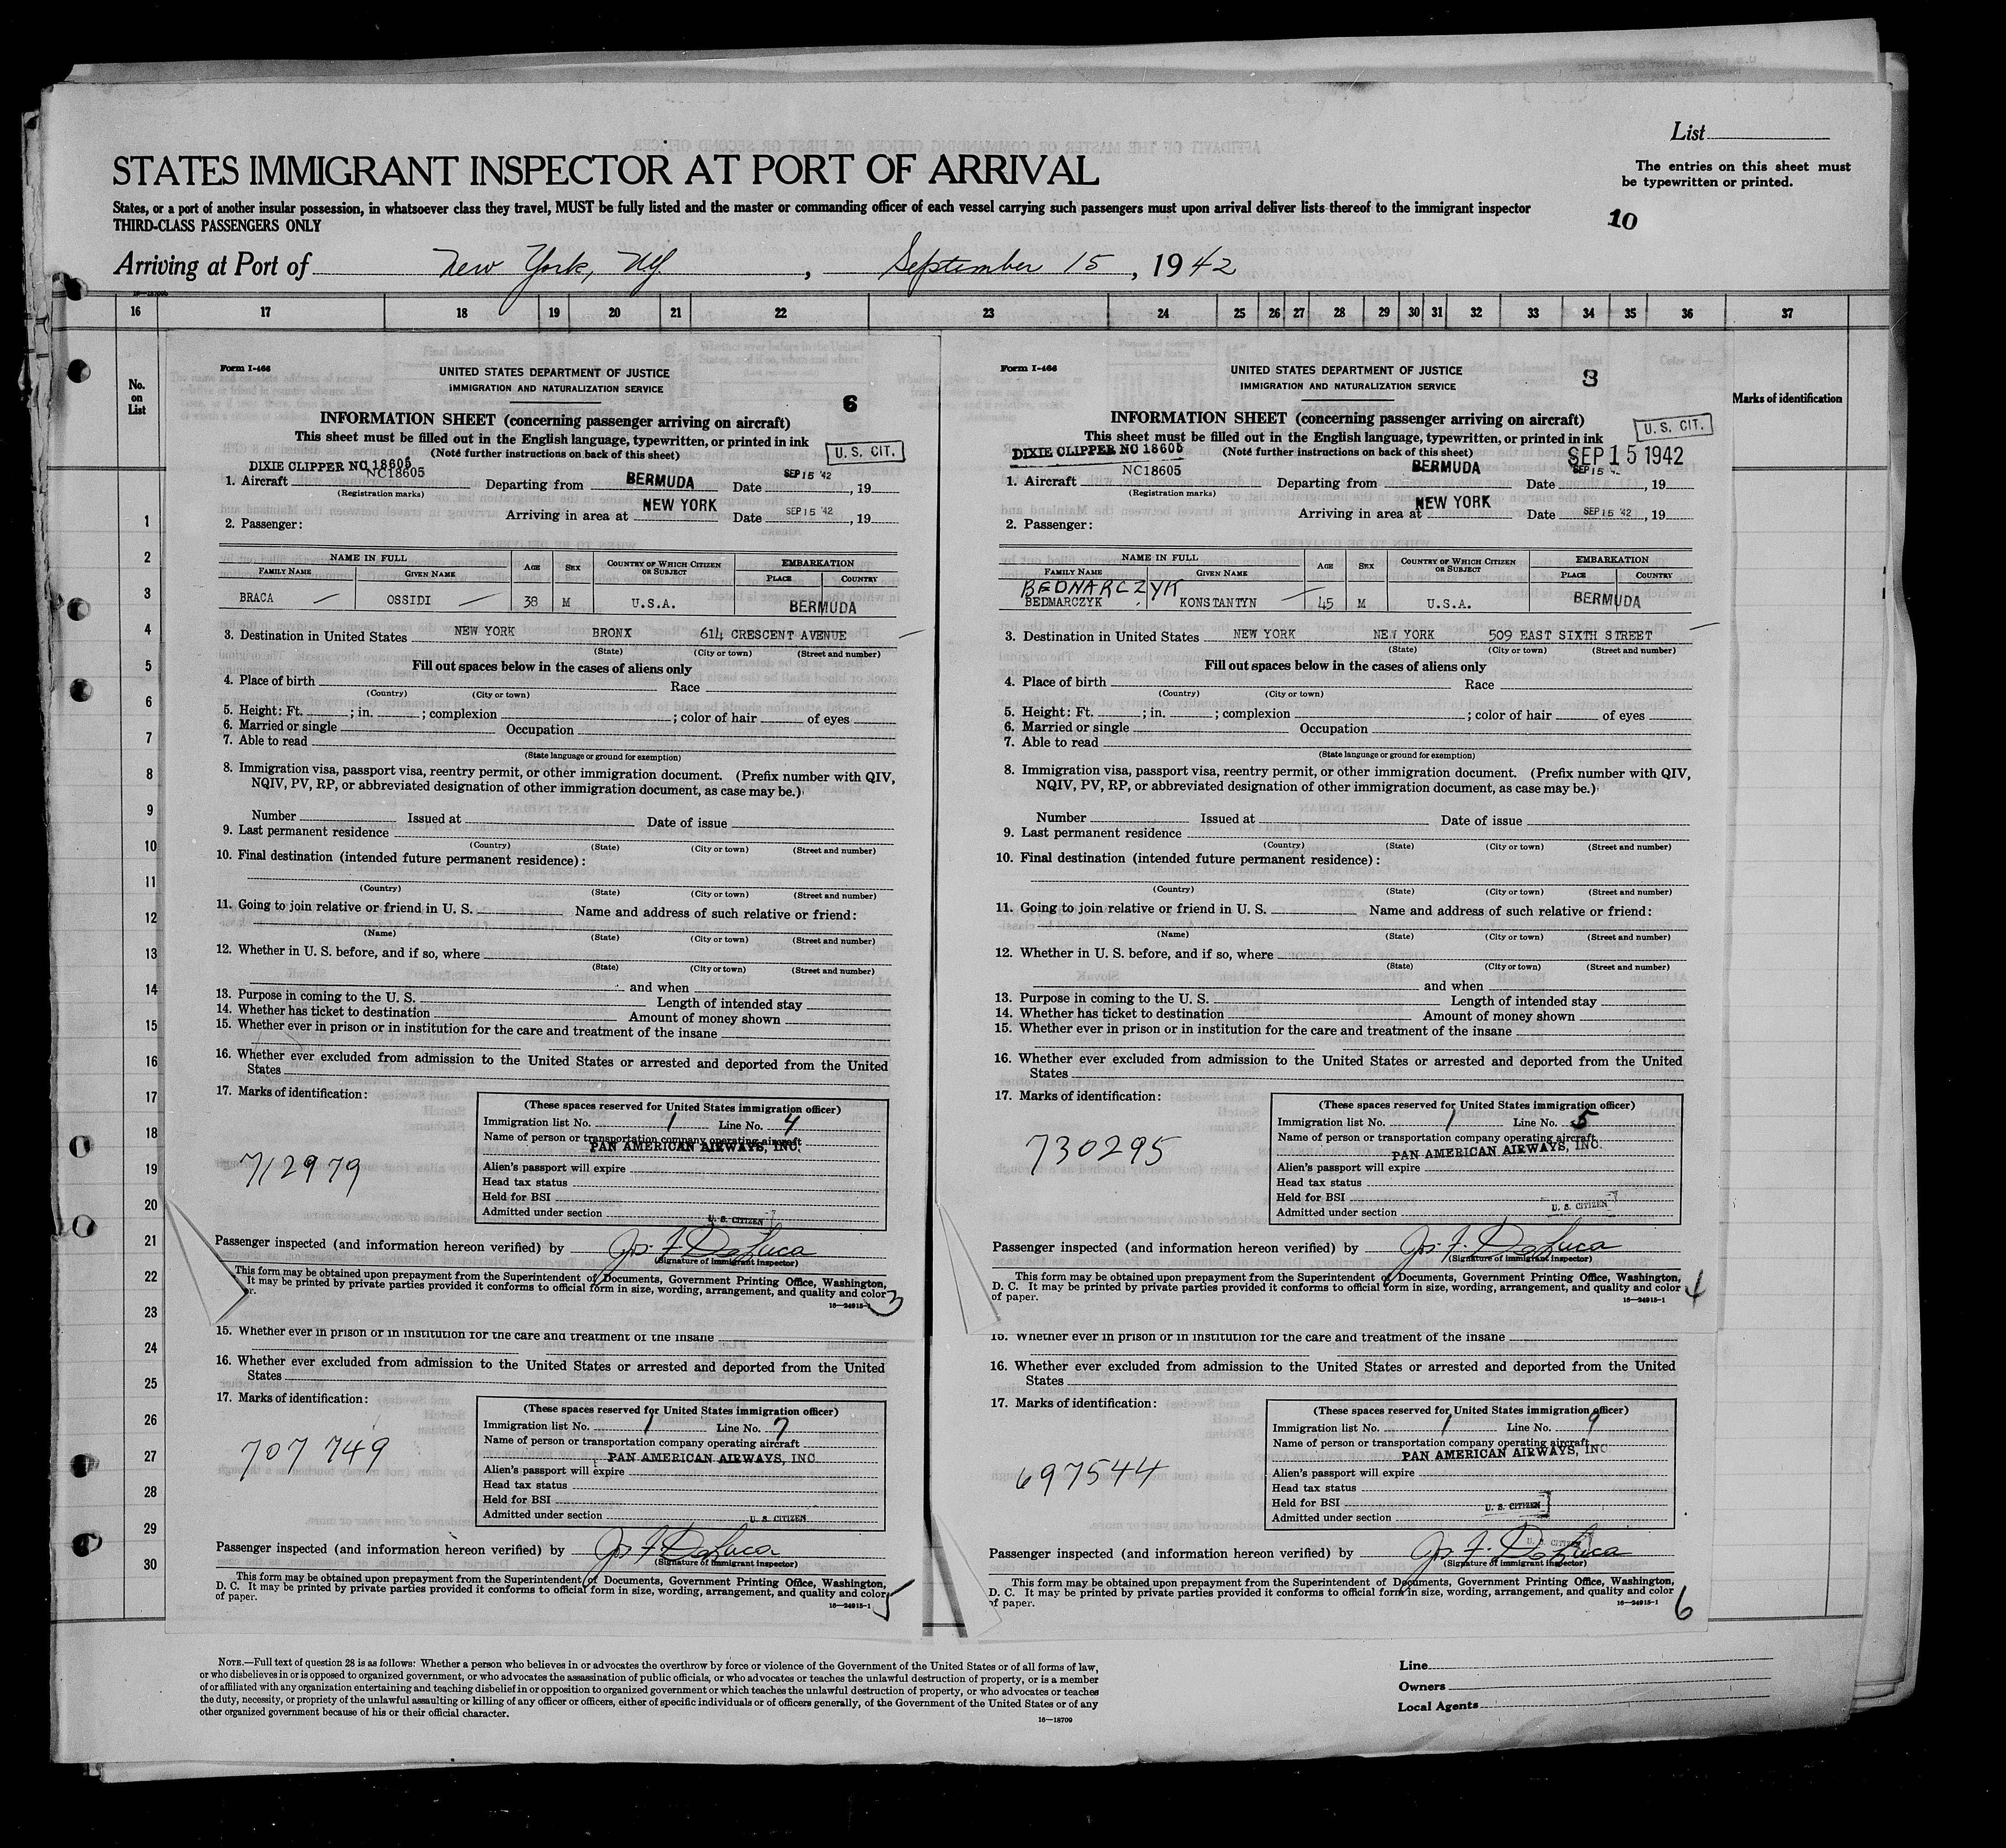 List
The entries on this sheet must
be typewritten or printed.
STATES IMMIGRANT INSPECTOR AT PORT OF ARRIVAL
States, or a port of another insular possession, in whatsoever class they travel, MUST be fully listed and the master or commanding officer of each vessel carrying such passengers must upon arrival deliver lists thereof to the immigrant inspector
THIRD-CLASS PASSENGERS ONLY
10
Arriving at Port of New York, NY. , September 15, 1942
16 17 18 19 20 21 22 23 24 25 26 27 28 29 30 31 32 33 34 35 36 37
No. on List
Marks of identification
1
2
3
4
5
6
7
8
9
10
11
12
13
14
15
16
17
18
19
20
21
22
23
24
25
26
27
28
29
30
Form I-466
UNITED STATES DEPARTMENT OF JUSTICE
IMMIGRATION AND NATURALIZATION SERVICE
6
INFORMATION SHEET (concerning passenger arriving on aircraft)
This sheet must be filled out in the English language, typewritten, or printed in ink
(Note further instructions on back of this sheet)
U. S. CIT.
DIXIE CLIPPER NC 18605
NC18605
1. Aircraft Departing from BERMUDA Date SEP 15 '42, 19
(Registration marks)
Arriving in area at NEW YORK Date SEP 15 '42, 19
2. Passenger:
NAME IN FULL
FAMILY NAME GIVEN NAME AGE SEX COUNTRY OF WHICH CITIZEN OR SUBJECT EMBARKATION PLACE COUNTRY
BRACA OSSIDI 38 M U.S.A. BERMUDA
3. Destination in United States NEW YORK BRONX 614 CRESCENT AVENUE
(State) (City or town) (Street and number)
Fill out spaces below in the cases of aliens only
4. Place of birth Race
(Country) (City or town)
5. Height: Ft. ; in. ; complexion ; color of hair of eyes
6. Married or single Occupation
7. Able to read
(State language or ground for exemption)
8. Immigration visa, passport visa, reentry permit, or other immigration document. (Prefix number with QIV,
NQIV, PV, RP, or abbreviated designation of other immigration document, as case may be.)
Number Issued at Date of issue
9. Last permanent residence
(Country) (State) (City or town) (Street and number)
10. Final destination (intended future permanent residence):
(Country) (State) (City or town) (Street and number)
11. Going to join relative or friend in U. S. Name and address of such relative or friend:
(Name) (State) (City or town) (Street and number)
12. Whether in U. S. before, and if so, where
(State) (City or town) (Street and number)
and when
13. Purpose in coming to the U. S. Length of intended stay
14. Whether has ticket to destination Amount of money shown
15. Whether ever in prison or in institution for the care and treatment of the insane
16. Whether ever excluded from admission to the United States or arrested and deported from the United
States
17. Marks of identification:
712979
(These spaces reserved for United States immigration officer)
Immigration list No. 1 Line No. 4
Name of person or transportation company operating aircraft
PAN AMERICAN AIRWAYS, INC.
Alien's passport will expire
Head tax status
Held for BSI
Admitted under section U. S. CITIZEN
Passenger inspected (and information hereon verified) by Jos. F. DeLuca
(Signature of immigrant inspector)
This form may be obtained upon prepayment from the Superintendent of Documents, Government Printing Office, Washington,
It may be printed by private parties provided it conforms to official form in size, wording, arrangement, and quality and color
r.
16—24915-1
3
15. Whether ever in prison or in institution for the care and treatment of the insane
16. Whether ever excluded from admission to the United States or arrested and deported from the United
States
17. Marks of identification:
707749
(These spaces reserved for United States immigration officer)
Immigration list No. 1 Line No. 7
Name of person or transportation company operating aircraft
PAN AMERICAN AIRWAYS, INC
Alien's passport will expire
Head tax status
Held for BSI
Admitted under section U. S. CITIZEN
Passenger inspected (and information hereon verified) by Jos. F. DeLuca
(Signature of immigrant inspector)
This form may be obtained upon prepayment from the Superintendent of Documents, Government Printing Office, Washington,
D. C. It may be printed by private parties provided it conforms to official form in size, wording, arrangement, and quality and color
of paper.
16—24915-1
5
Form I-466
UNITED STATES DEPARTMENT OF JUSTICE
IMMIGRATION AND NATURALIZATION SERVICE
3
INFORMATION SHEET (concerning passenger arriving on aircraft)
U. S. CIT.
This sheet must be filled out in the English language, typewritten, or printed in ink
(Note further instructions on back of this sheet)
SEP 15 1942
DIXIE CLIPPER NC 18605
NC18605
1. Aircraft Departing from BERMUDA Date SEP 15, 19
(Registration marks)
Arriving in area at NEW YORK Date SEP 15 '42, 19
2. Passenger:
NAME IN FULL
FAMILY NAME GIVEN NAME AGE SEX COUNTRY OF WHICH CITIZEN OR SUBJECT EMBARKATION PLACE COUNTRY
BEDNARCZYK
BEDMARCZYK KONSTANTYN 45 M U.S.A. BERMUDA
3. Destination in United States NEW YORK NEW YORK 509 EAST SIXTH STREET
(State) (City or town) (Street and number)
Fill out spaces below in the cases of aliens only
4. Place of birth Race
(Country) (City or town)
5. Height: Ft. ; in. ; complexion ; color of hair of eyes
6. Married or single Occupation
7. Able to read
(State language or ground for exemption)
8. Immigration visa, passport visa, reentry permit, or other immigration document. (Prefix number with QIV,
NQIV, PV, RP, or abbreviated designation of other immigration document, as case may be.)
Number Issued at Date of issue
9. Last permanent residence
(Country) (State) (City or town) (Street and number)
10. Final destination (intended future permanent residence):
(Country) (State) (City or town) (Street and number)
11. Going to join relative or friend in U. S. Name and address of such relative or friend:
(Name) (State) (City or town) (Street and number)
12. Whether in U. S. before, and if so, where
(State) (City or town) (Street and number)
and when
13. Purpose in coming to the U. S. Length of intended stay
14. Whether has ticket to destination Amount of money shown
15. Whether ever in prison or in institution for the care and treatment of the insane
16. Whether ever excluded from admission to the United States or arrested and deported from the United
States
17. Marks of identification:
730295
(These spaces reserved for United States immigration officer)
Immigration list No. 1 Line No. 5
Name of person or transportation company operating aircraft
PAN AMERICAN AIRWAYS, INC.
Alien's passport will expire
Head tax status
Held for BSI
Admitted under section U. S. CITIZEN
Passenger inspected (and information hereon verified) by Jos. F. DeLuca
(Signature of immigrant inspector)
This form may be obtained upon prepayment from the Superintendent of Documents, Government Printing Office, Washington,
D. C. It may be printed by private parties provided it conforms to official form in size, wording, arrangement, and quality and color
of paper.
16—24915-1
4
15. Whether ever in prison or in institution for the care and treatment of the insane
16. Whether ever excluded from admission to the United States or arrested and deported from the United
States
17. Marks of identification:
697544
(These spaces reserved for United States immigration officer)
Immigration list No. 1 Line No. 9
Name of person or transportation company operating aircraft
PAN AMERICAN AIRWAYS, INC
Alien's passport will expire
Head tax status
Held for BSI U. S. CITIZEN
Admitted under section
U. S. CITIZEN
Passenger inspected (and information hereon verified) by Jos. F. DeLuca
(Signature of immigrant inspector)
This form may be obtained upon prepayment from the Superintendent of Documents, Government Printing Office, Washington,
D. C. It may be printed by private parties provided it conforms to official form in size, wording, arrangement, and quality and color
of paper.
16—24915-1
6
NOTE.—Full text of question 28 is as follows: Whether a person who believes in or advocates the overthrow by force or violence of the Government of the United States or of all forms of law,
or who disbelieves in or is opposed to organized government, or who advocates the assassination of public officials, or who advocates or teaches the unlawful destruction of property, or is a member
of or affiliated with any organization entertaining and teaching disbelief in or opposition to organized government or which teaches the unlawful destruction of property, or who advocates or teaches
the duty, necessity, or propriety of the unlawful assaulting or killing of any officer or officers, either of specific individuals or of officers generally, of the Government of the United States or of any
other organized government because of his or their official character.
16—18709
Line
Owners
Local Agents